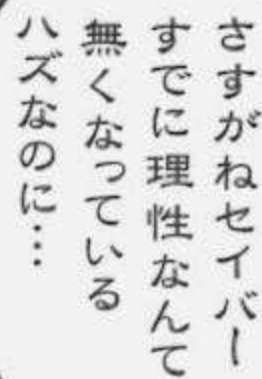 さすがねセイバー
すでに理性なんて
無くなっている
ハズなのに…